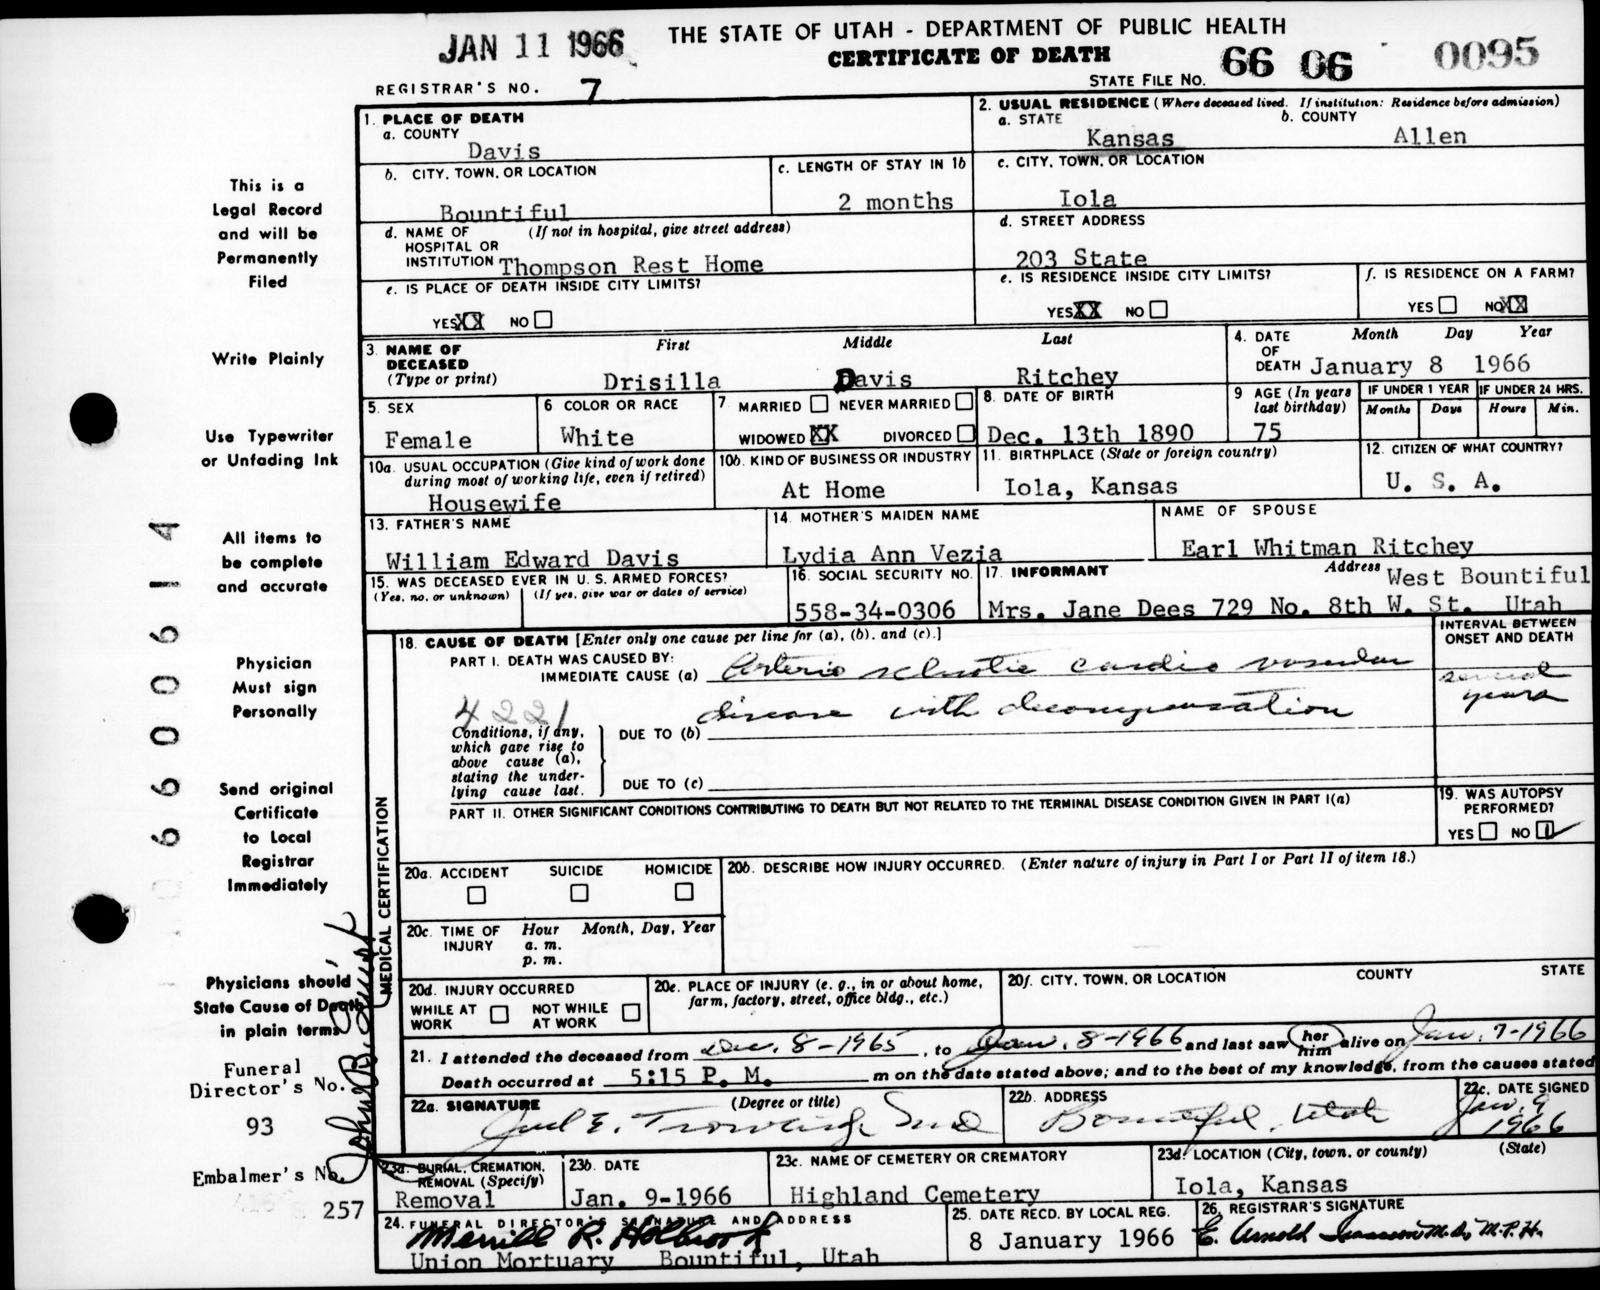 JAN 11 1966
THE STATE OF UTAH - DEPARTMENT OF PUBLIC HEALTH
CERTIFICATE OF DEATH
STATE FILE NO. 66 06 0095
REGISTRAR'S NO. 7
1. PLACE OF DEATH
a. COUNTY
Davis
2. USUAL RESIDENCE (Where deceased lived. If institution: Residence before admission)
a. STATE Kansas
b. COUNTY Allen
b. CITY, TOWN, OR LOCATION
Bountiful
c. LENGTH OF STAY IN 1b
2 months
c. CITY, TOWN, OR LOCATION
Iola
d. NAME OF HOSPITAL OR INSTITUTION (If not in hospital, give street address)
Thompson Rest Home
d. STREET ADDRESS
203 State
e. IS PLACE OF DEATH INSIDE CITY LIMITS?
YES XX NO
e. IS RESIDENCE INSIDE CITY LIMITS?
YES XX NO
f. IS RESIDENCE ON A FARM?
YES NO XX
3. NAME OF DECEASED (Type or print)
First Middle Last
Drisilla Davis Ritchey
4. DATE OF DEATH Month Day Year
January 8 1966
5. SEX
Female
6 COLOR OR RACE
White
7 MARRIED NEVER MARRIED
WIDOWED XX DIVORCED
8. DATE OF BIRTH
Dec. 13th 1890
9 AGE (In years last birthday)
75
IF UNDER 1 YEAR IF UNDER 24 HRS.
Months Days Hours Min.
10a. USUAL OCCUPATION (Give kind of work done during most of working life, even if retired)
Housewife
10b. KIND OF BUSINESS OR INDUSTRY
At Home
11. BIRTHPLACE (State or foreign country)
Iola, Kansas
12. CITIZEN OF WHAT COUNTRY?
U. S. A.
13. FATHER'S NAME
William Edward Davis
14. MOTHER'S MAIDEN NAME
Lydia Ann Vezia
NAME OF SPOUSE
Earl Whitman Ritchey
15. WAS DECEASED EVER IN U. S. ARMED FORCES?
(Yes, no, or unknown) (If yes, give war or dates of service)
16. SOCIAL SECURITY NO.
558-34-0306
17. INFORMANT Address West Bountiful
Mrs. Jane Dees 729 No. 8th W. St. Utah
MEDICAL CERTIFICATION
18. CAUSE OF DEATH [Enter only one cause per line for (a), (b). and (c).]
INTERVAL BETWEEN ONSET AND DEATH
PART I. DEATH WAS CAUSED BY:
IMMEDIATE CAUSE (a) Arterio sclerotic cardio vascular
disease with decompensation
several years
4221
Conditions, if any, which gave rise to above cause (a), stating the underlying cause last.
DUE TO (b)
DUE TO (c)
PART II. OTHER SIGNIFICANT CONDITIONS CONTRIBUTING TO DEATH BUT NOT RELATED TO THE TERMINAL DISEASE CONDITION GIVEN IN PART I(a)
19. WAS AUTOPSY PERFORMED?
YES NO
20a. ACCIDENT SUICIDE HOMICIDE
20b. DESCRIBE HOW INJURY OCCURRED. (Enter nature of injury in Part I or Part II of item 18.)
20c. TIME OF INJURY Hour Month, Day, Year
a. m.
p. m.
20d. INJURY OCCURRED
WHILE AT WORK NOT WHILE AT WORK
20e. PLACE OF INJURY (e. g., in or about home, farm, factory, street, office bldg., etc.)
20f. CITY, TOWN, OR LOCATION COUNTY STATE
21. I attended the deceased from Dec. 8-1965, to Jan. 8-1966 and last saw her him alive on Jan. 7-1966
Death occurred at 5:15 P. M. m on the date stated above; and to the best of my knowledge, from the causes stated
22a. SIGNATURE (Degree or title)
22b. ADDRESS
Bountiful, Utah
22c. DATE SIGNED
Jan. 9 1966
23a. BURIAL, CREMATION, REMOVAL (Specify)
Removal
23b. DATE
Jan. 9-1966
23c. NAME OF CEMETERY OR CREMATORY
Highland Cemetery
23d. LOCATION (City, town, or county) (State)
Iola, Kansas
24. FUNERAL DIRECTOR'S SIGNATURE AND ADDRESS
Merrill R. Holbrook
Union Mortuary Bountiful, Utah
25. DATE RECD. BY LOCAL REG.
8 January 1966
26. REGISTRAR'S SIGNATURE
E. Arnold Isaacson M.D., M.P.H.
This is a
Legal Record
and will be
Permanently
Filed
Write Plainly
Use Typewriter
or Unfading Ink
All items to
be complete
and accurate
Physician
Must sign
Personally
Send original
Certificate
to Local
Registrar
Immediately
Physicians should
State Cause of Death
in plain terms
Funeral
Director's No.
93
Embalmer's No.
257
66000614